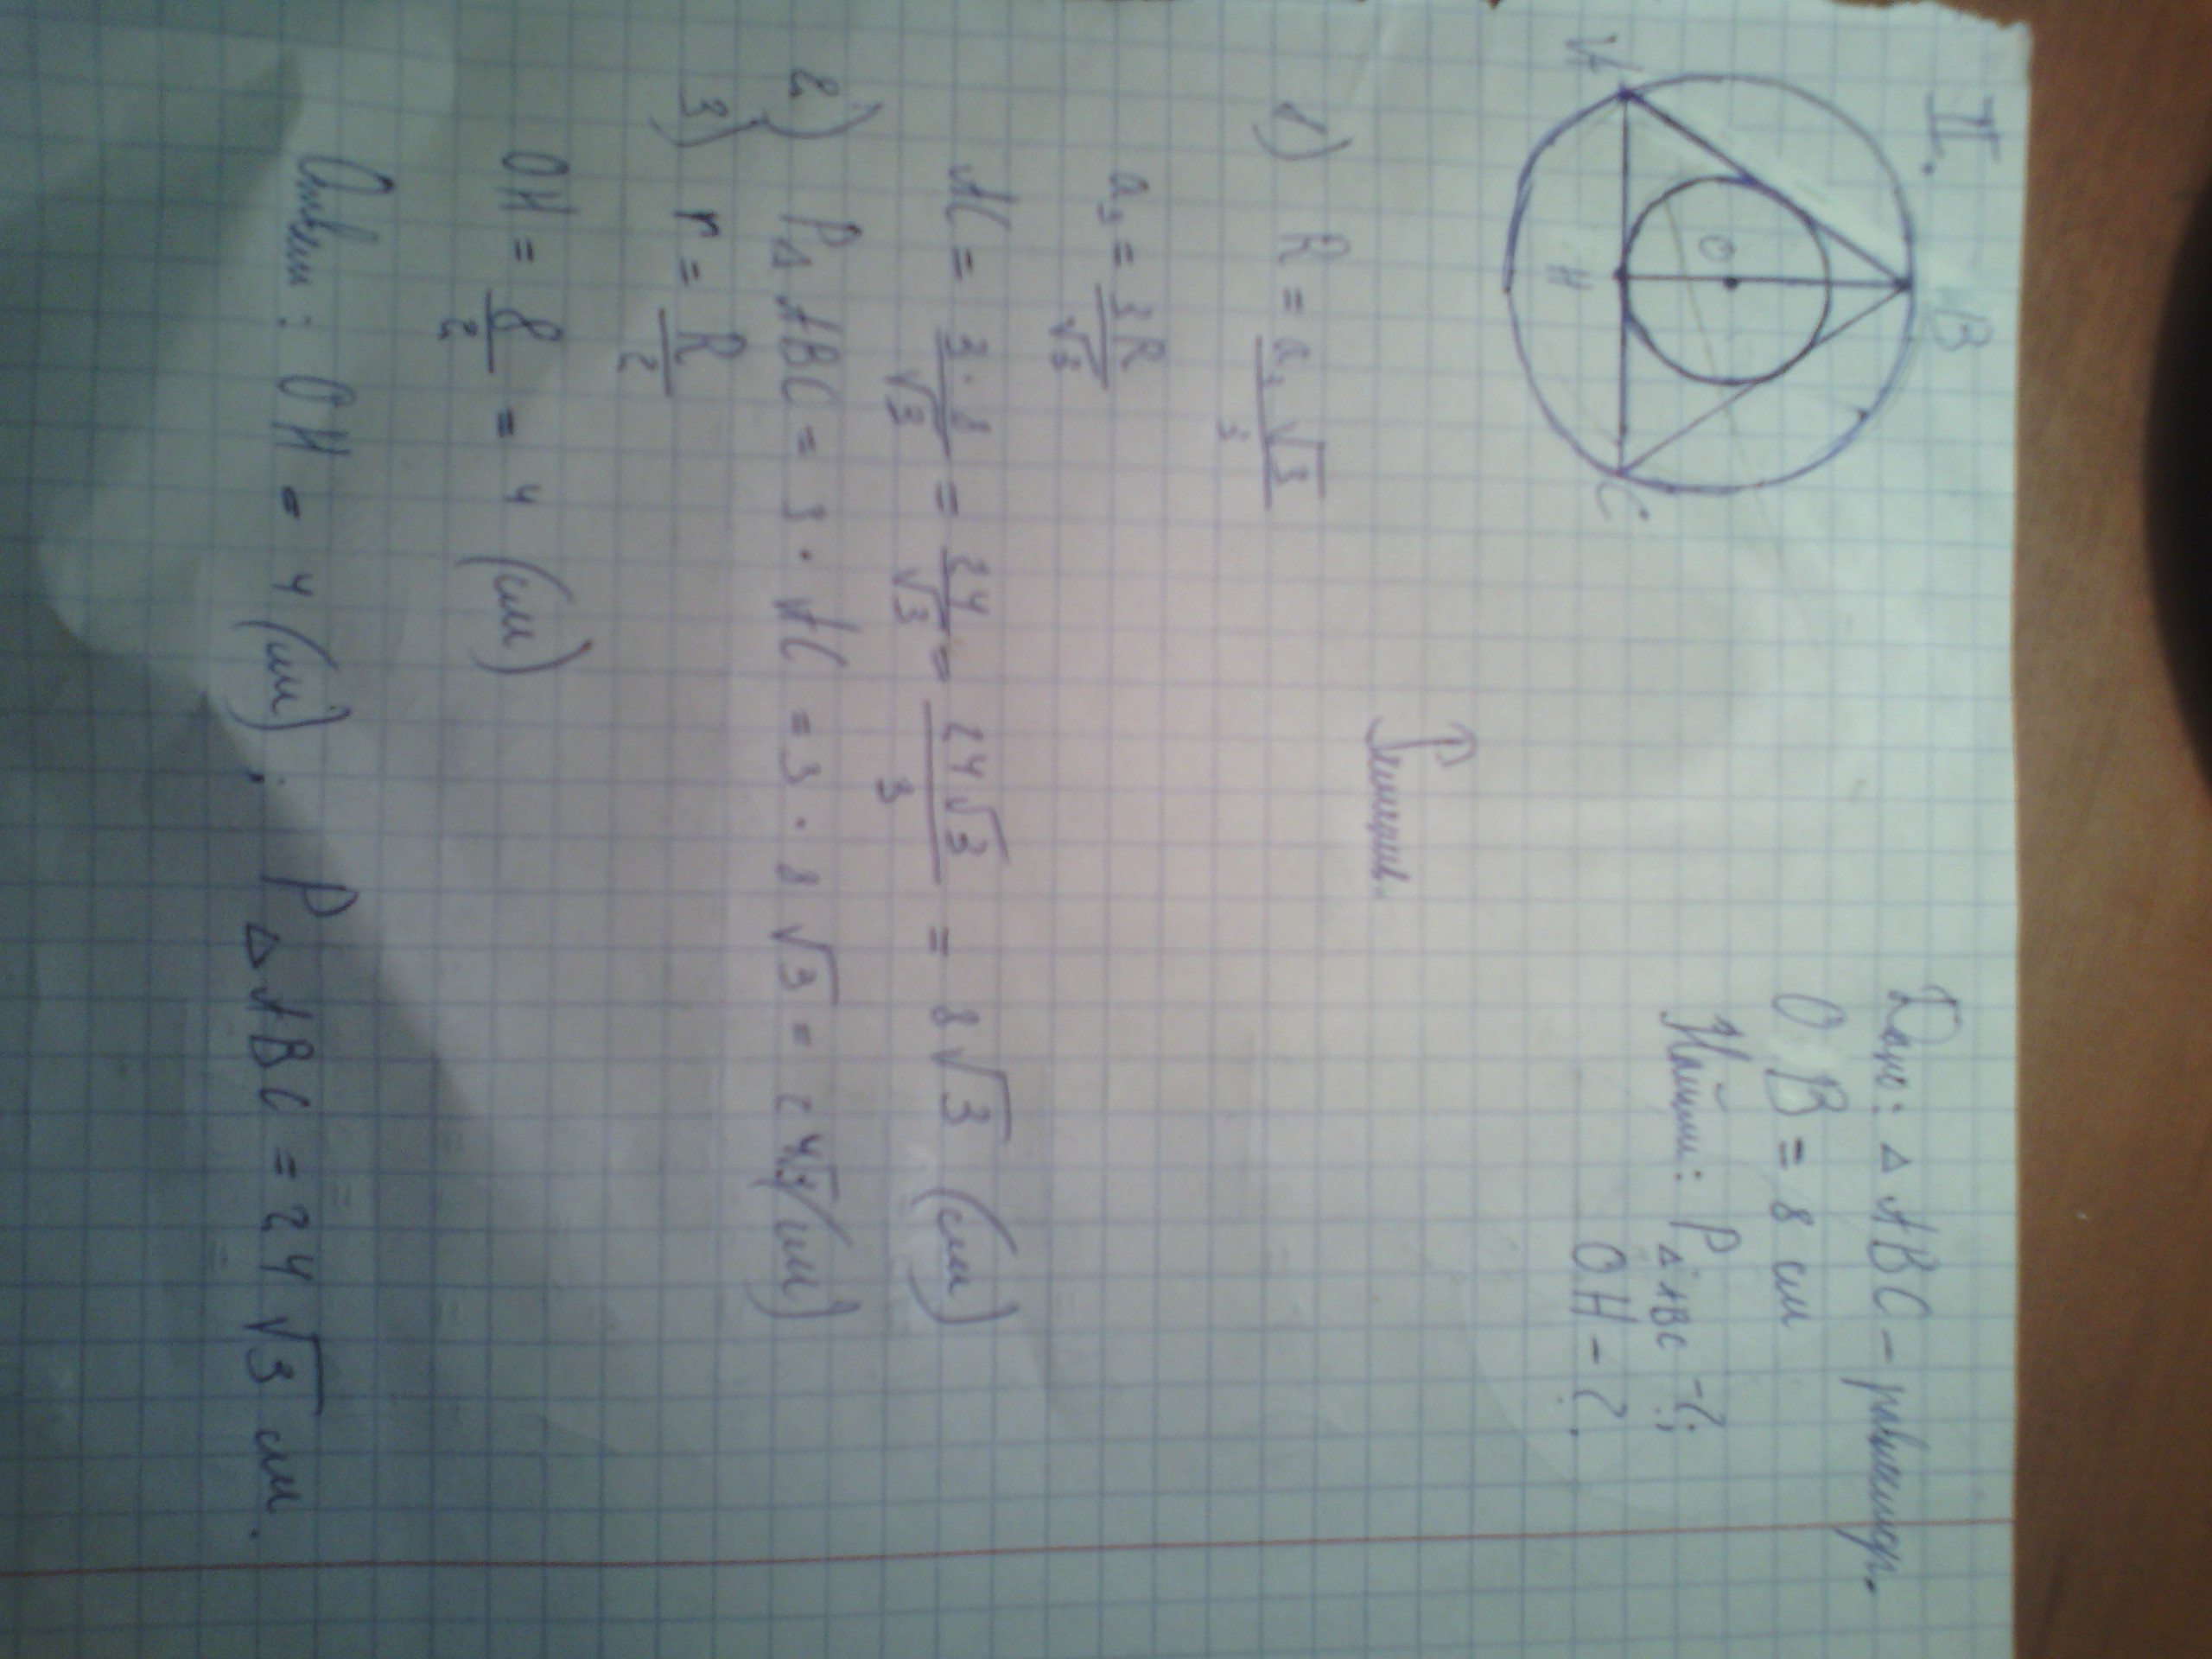 II.
B
O
A
H
C
Дано: △ ABC - равностор.
OB = 8 см
Найти: P△ABC - ?;
OH - ?.
Решение.
1) R = a₃√3/3
a₃ = 3R/√3
AC = 3·8/√3 = 24/√3 = 24√3/3 = 8√3 (см)
2) P△ABC = 3·AC = 3·8√3 = 24√3 (см)
3) r = R/2
OH = 8/2 = 4 (см)
Ответ: OH = 4 (см); P△ABC = 24√3 см.